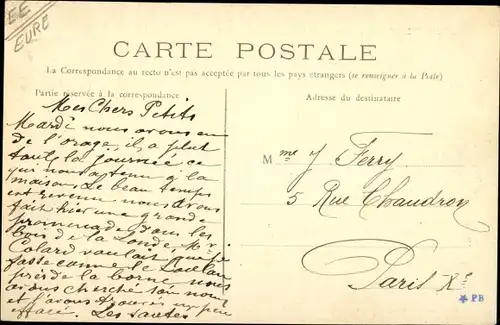 EE
EURE
CARTE POSTALE
La Correspondance au recto n'est pas acceptée par tous les pays étrangers (se renseigner à la Poste)
Partie réservée à la correspondance
Adresse du destinataire
Mes Chers Petits
Mardi nous avons eu
de l'orage, il a plut
toute la journée ce
qui nous a tenu à la
maison. Le beau temps
est revenu nous avons
fait hier une grande
promenade dans les
bois de la Londe Mr
Colard voulait que je
fasse comme le
près de la borne nous
avons cherché ton nom
et l'avons trouvés un peu
effacé. Les
Mme J Ferry
5 Rue Chaudron
Paris Xe
PB